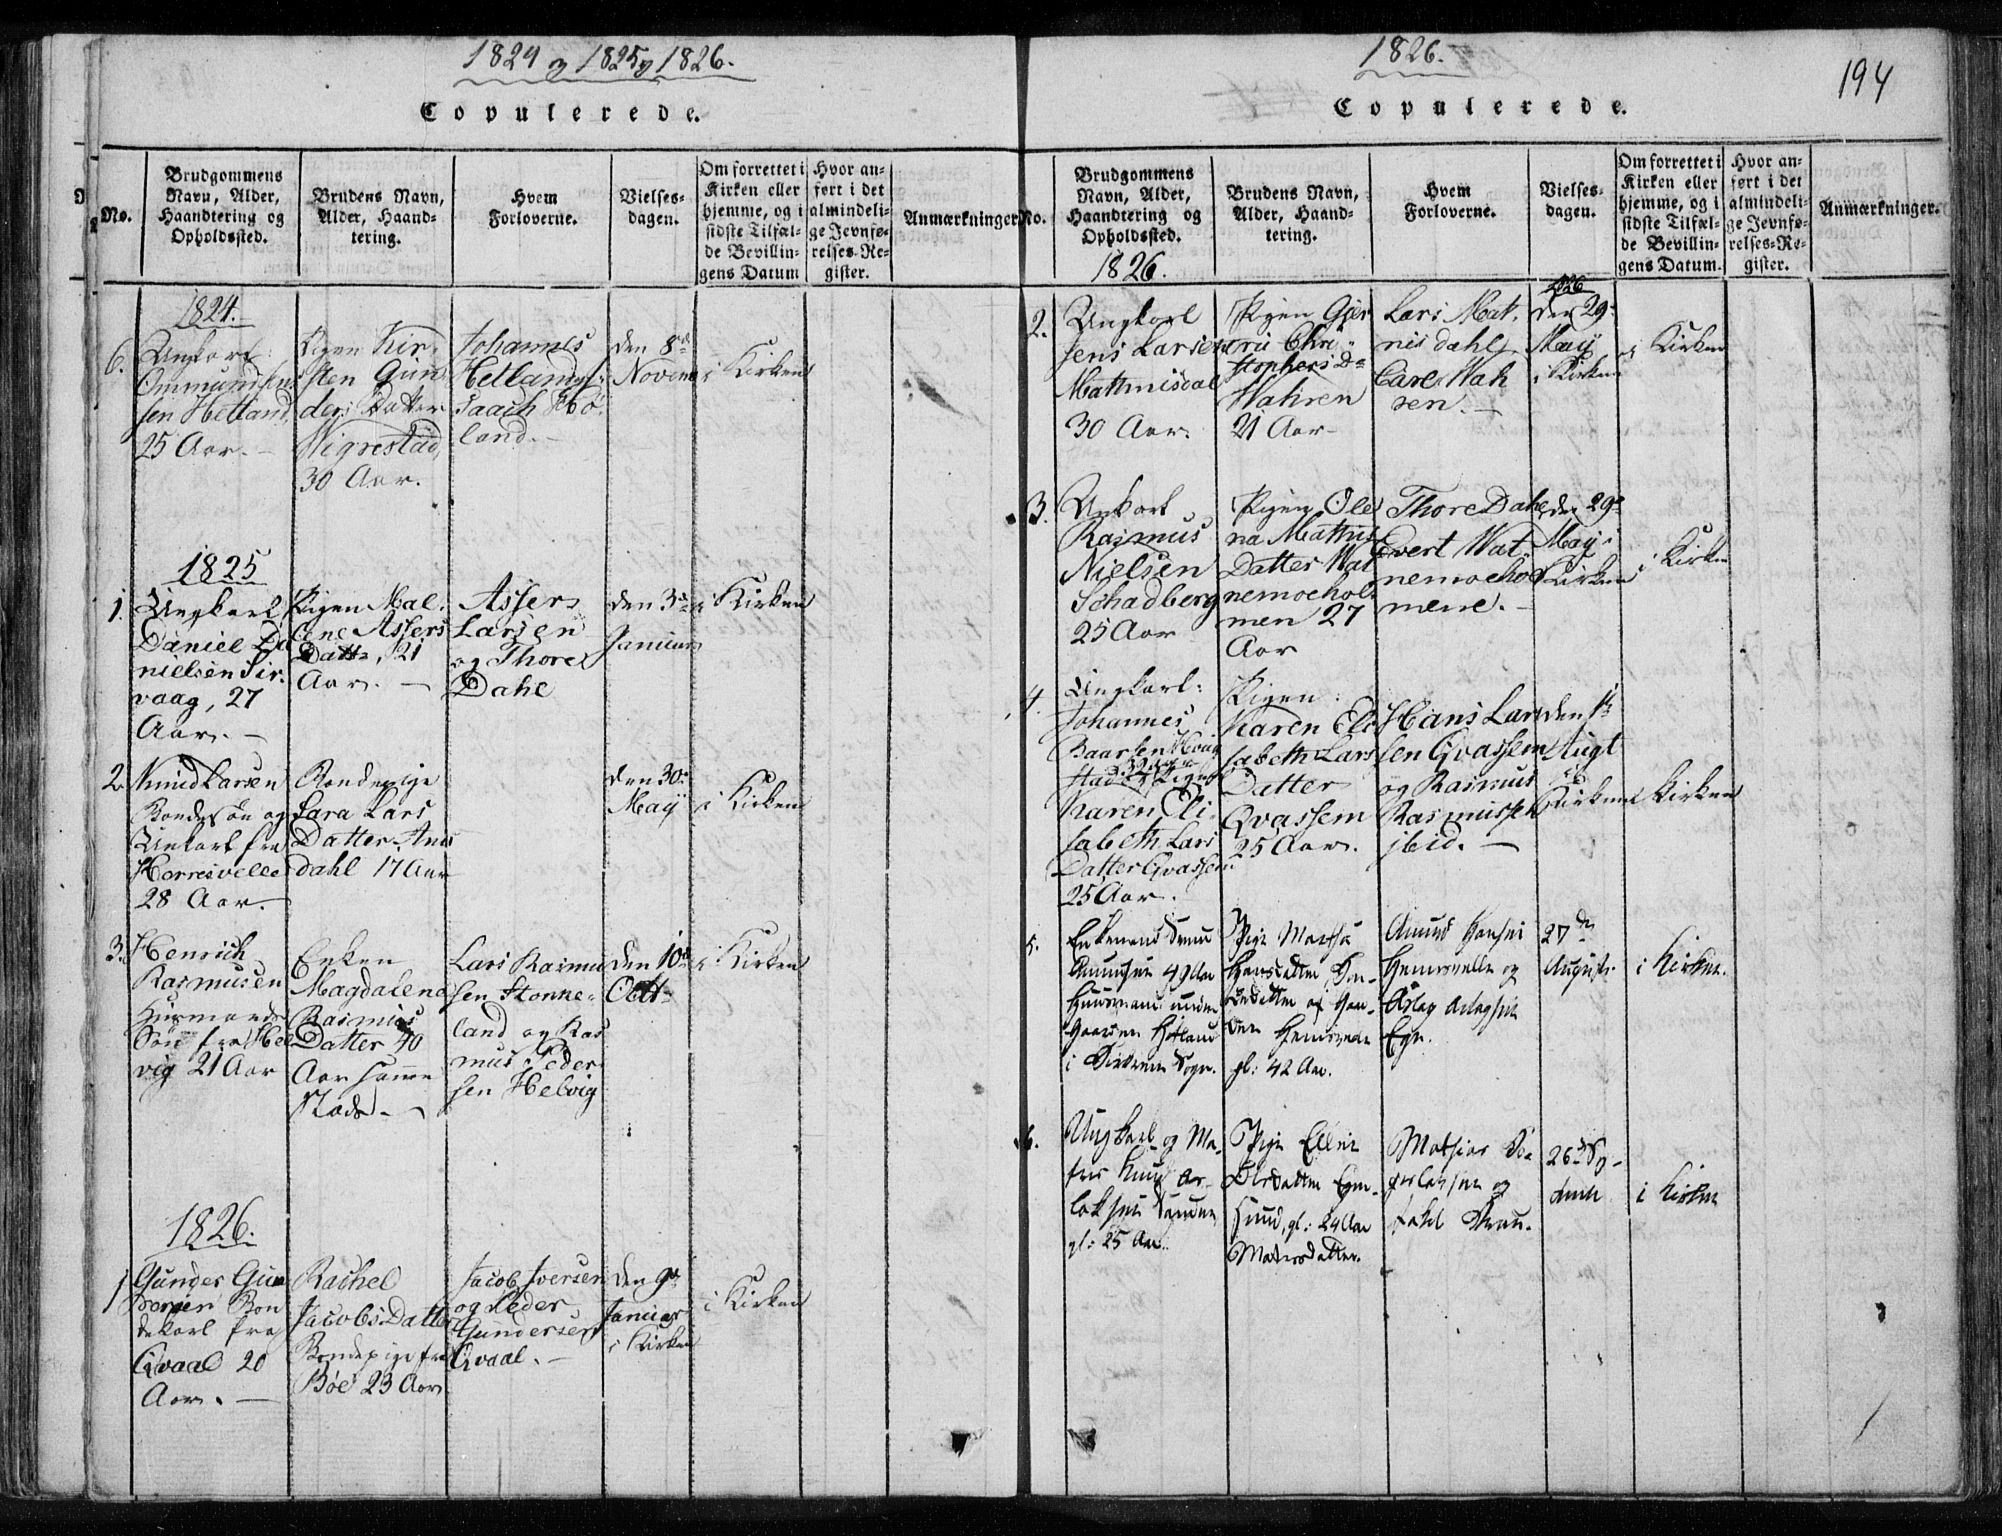 1824 og 1825 og 1826.
Copulerede.
No.
Brudgommens
Navn, Alder,
Haandtering og
Opholdssted.
Brudens Navn,
Alder, Haand-
tering.
Hvem
Forloverne.
Vielses-
dagen.
Om forrettet i
Kirken eller
hjemme, og i
sidste Tilfæl-
de Bevillin-
gens Datum
Hvor an-
ført i det
almindeli-
ge Jevnfø-
relses-Re-
gister.
Anmærkninger.
1824.
6.
Ungkarl
Ommund
sen Hetland
25 Aar.
Pigen Kir-
sten Gun
ders Datter
Wigrestad,
30 Aar.
Johannes
Hetland
Isaach
land.
den 8de
Novem
i Kirken
1825
1.
Ungkarl
Daniel Da
nielsen Sir
vaag, 27
Aar.
Pigen Mal
ene Assers
Datt, 21
Aar.
Asser
Larsen
og Thore
Dahl
den 3
Januar
i Kirken
2.
Knud Larsen
Bondesøn og
Ungkarl fra
Horrisvelle
28 Aar.
Bondepige
Sara Lars
Datter Aas
dahl 17 Aar
den 30
May
i Kirken
3.
Henrich
Rasmusen
Huusmands
Søn fra Hel
vig 21 Aar
Enken
Magdalena
Rasmus
Datter 40
Aar samme
Stæds
Lars Rasmu
sen Stonne
land og Ras
mus Peder
sen Helvig
den 10de
Octt
i Kirken
1826.
1
Gunder Gun
dersen Bon
dekarl fra
Qvaal 20
Aar.
Rachel
Jacobs Datter
Bondepige fra
Bøe 23 Aar
Jacob Iversen
og Peder
Gundersen
Qvaal.
den 9de
Januar
i Kirken
i Kirken
1826.
194
Copulerede.
No.
Brudgommens
Navn, Alder,
Haandtering og
Opholdssted.
Brudens Navn,
Alder, Haand-
tering.
Hvem
Forloverne.
Vielses-
dagen.
Om forrettet i
Kirken eller
hjemme, og i
sidste Tilfæl-
de Bevillin-
gens Datum.
Hvor an-
ført i det
almindeli-
ge Jevnfø-
relses-Re-
gister.
Anmærkninger.
1826.
2.
Ungkarl
Jens Larsen
Mathnisdal
30 Aar.
Pigen Gur
rie Chri
stophers D
Wahren
21 Aar
Lars Mat
nisdahl
Carl Wah
ren.
1826
den 29
May
i Kirken
i Kirken
3.
Unkarl
Rasmus
Nielsen
Schadberg
25 Aar
Pigen Ole
na Mathis
Datter Wat
nemoehol
men 27
Aar
Thore Dahl
Evert Wat
nemoehol
mene.
den 29
May
Kirken
i Kirken
4.
Ungkarl
Johannes
Baarsen
stad og Pigen
Karen Eli
sabeth Lars
Datter Qvassem
25 Aar.
Pigen
Karen Eli
sabeth Lars
Datter
Qvassem
25 Aar.
Hans Lar
sen Qvassem
og Rasmus
Rasmussen
ibid.
den 1ste
Augt
Kirken
Kirken
5.
Enkemand Svend
49 Aar
Huusmand under
Gaarden Hetland
i Sogn.
Pige Martha
Hansdatter
gl: 42 Aar.
Amund Hansen
og
Aslag Aslagsen
Ege.
27de
August.
i Kirken.
6.
Ungkarl og Ma-
tros Knud As-
laksen
gl: 25 Aar.
Pige Ellen
Olsdatter Eger-
sund, gl: 24 Aar
Matrosdatter.
Mathias
og
26de Sep-
tembr
i Kirken